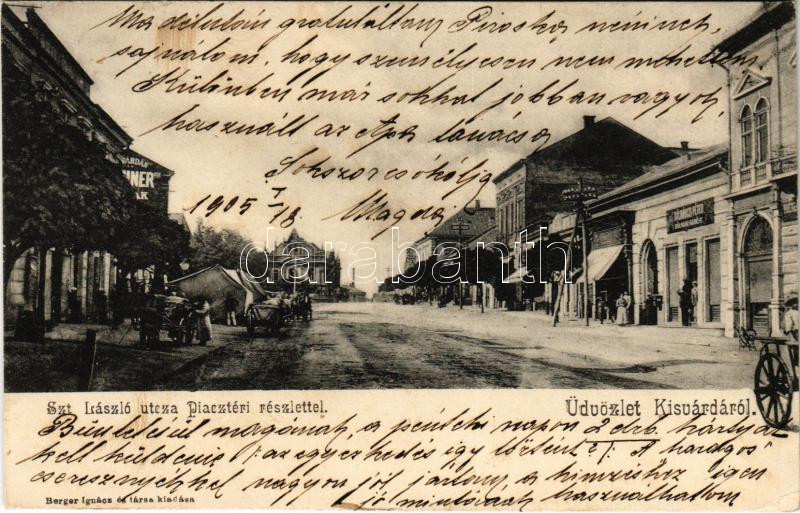 Ma délután gratuláltam Piroska néninek,
sajnálom, hogy személyesen nem mehettem.
Különben már sokkal jobban vagyok,
használt az Apa tanácsa
Sokszor csókolja
1905 I/18. Magda
INER
darabanth
Szt László utcza Piacztéri részlettel.
Üdvözlet Kisvárdáról.
Büntetésül magának, a pénteki napon 2 drb. kártyát
kell küldenie; az egyezkedés így történt: A hardgos
cseresznyékkel nagyon jól jártam, a hímzéshez igen
jó mintának használhatom
Berger Ignácz és társa kiadása